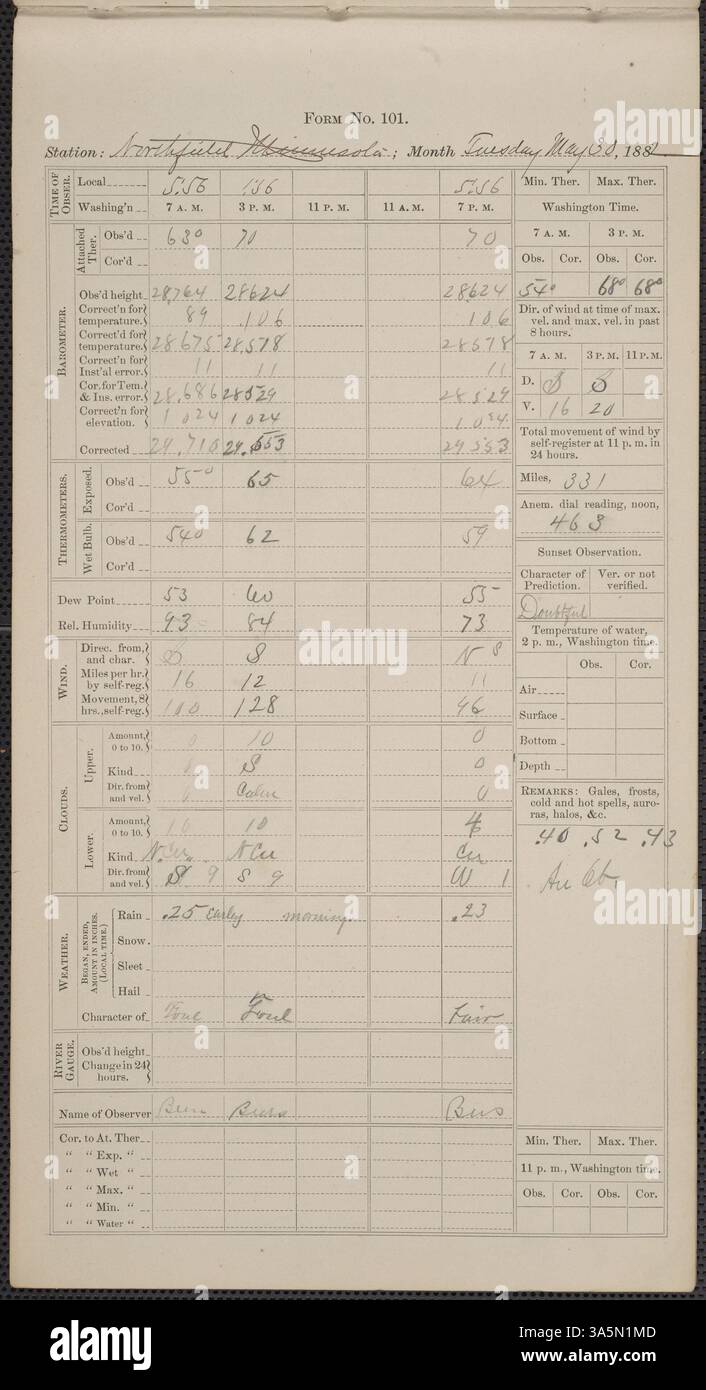 FORM NO. 101.
Station: Northfield Minnesota; Month Tuesday May 30, 1882
TIME OF OBSER.
Local 5.56 1 56 5.56
Washing'n 7 A. M. 3 P. M. 11 P. M. 11 A. M. 7 P. M.
Min. Ther. Max. Ther.
Washington Time.
7 A. M. 3 P. M.
Obs. Cor. Obs. Cor.
54° 68° 68°
BAROMETER.
Attached Ther.
Obs'd 630 70 70
Cor'd
Obs'd height 28,764 28624 28624
Correct'n for temperature. 89 106 106
Correct'd for temperature. 28.675 28,518 28518
Correct'n for Inst'al error. 11 11 11
Cor. for Tem. & Ins. error. 28,686 28529 28529
Correct'n for elevation. 1 024 1 024 1.024
Corrected 29,710 29.553 29553
Dir. of wind at time of max. vel. and max. vel. in past 8 hours.
7 A. M. 3 P. M. 11 P. M.
D. S S
V. 16 20
Total movement of wind by self-register at 11 p. m. in 24 hours.
Miles, 331
Anem. dial reading, noon,
463
THERMOMETERS.
Exposed.
Obs'd 550 65 64
Cor'd
Wet Bulb.
Obs'd 540 62 59
Cor'd
Dew Point 53 60 55
Rel. Humidity 93 84 73
Sunset Observation.
Character of Prediction. Ver. or not verified.
Doubtful
Temperature of water, 2 p. m., Washington time.
Obs. Cor.
Air
Surface
Bottom
Depth
WIND.
Direc. from, and char. S S
Miles per hr. by self-reg. 16 12 11
Movement, 8 hrs., self-reg. 100 128 46
CLOUDS.
Upper.
Amount, 0 to 10. 0 10 0
Kind 0 S 0
Dir. from and vel. 0 Calm 0
Lower.
Amount, 0 to 10. 10 10 4
Kind N.Cu. N Cu Cu
Dir. from and vel. S 9 S 9 W 1
REMARKS: Gales, frosts, cold and hot spells, auroras, halos, &c.
.40 .52 .43
WEATHER.
BEGAN, ENDED, AMOUNT IN INCHES. (LOCAL TIME.)
Rain .25 early morning .23
Snow.
Sleet
Hail
Character of Foul Foul Fair
RIVER GAUGE.
Obs'd height
Change in 24 hours.
Name of Observer
Cor. to At. Ther
" " Exp. "
" " Wet "
" " Max. "
" " Min. "
" " Water "
Min. Ther. Max. Ther.
11 p. m., Washington time.
Obs. Cor. Obs. Cor.
alamy
Image ID: 3A5N1MD
www.alamy.com